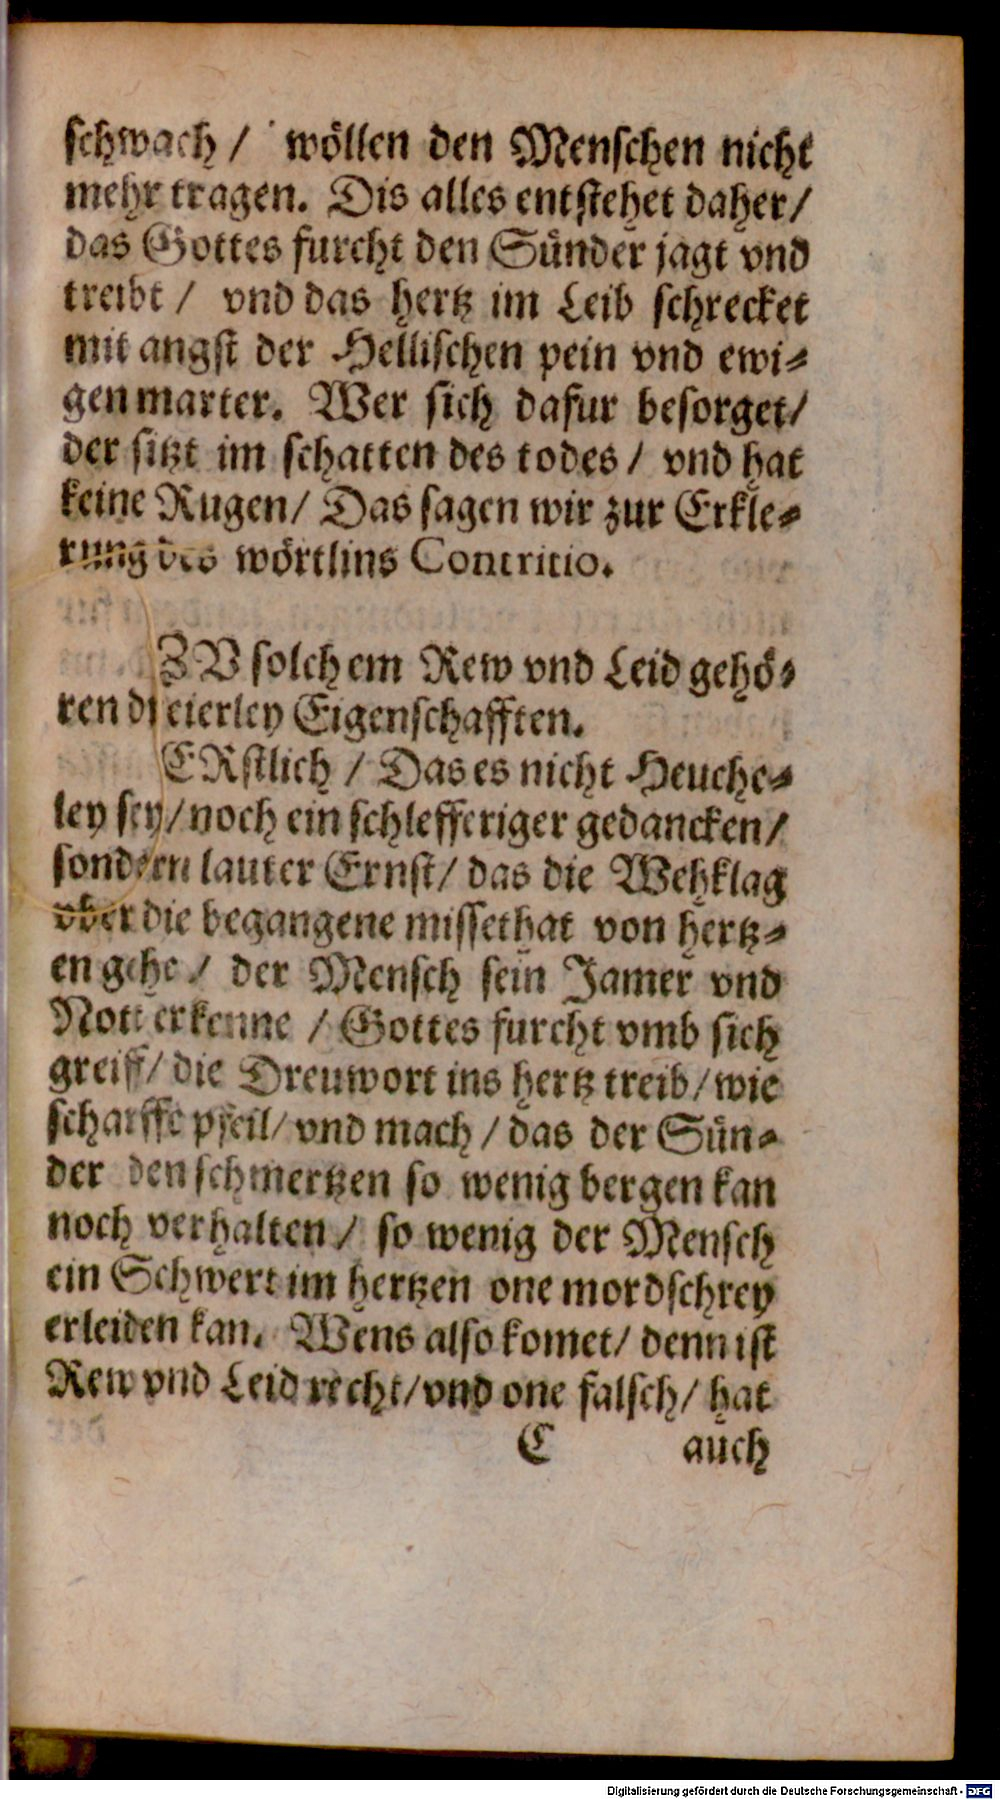 schwach / wöllen den Menschen nicht
mehr tragen. Dis alles entstehet daher/
das Gottes furcht den Sünder jagt vnd
treibt / vnd das hertz im Leib schrecket
mit angst der Hellischen pein vnd ewi⸗
gen marter. Wer sich dafur besorget/
der sitzt im schatten des todes / vnd hat
keine Rugen/ Das sagen wir zur Erkle⸗
rung des wörtlins Contritio.
ZV solchem Rew vnd Leid gehö⸗
ren dreierley Eigenschafften.
ERstlich / Das es nicht Heuche⸗
ley sey/ noch ein schlefferiger gedancken/
sondern lauter Ernst/ das die Wehklag
vber die begangene missethat von hertz⸗
en gehe / der Mensch sein Jamer vnd
Nott erkenne / Gottes furcht vmb sich
greiff/ die Dreuwort ins hertz treib/ wie
scharffe pfeil/ vnd mach / das der Sün⸗
der den schmertzen so wenig bergen kan
noch verhalten / so wenig der Mensch
ein Schwert im hertzen one mordschrey
erleiden kan. Wens also komet/ denn ist
Rew vnd Leid recht/ vnd one falsch/ hat
C auch
Digitalisierung gefördert durch die Deutsche Forschungsgemeinschaft - DFG